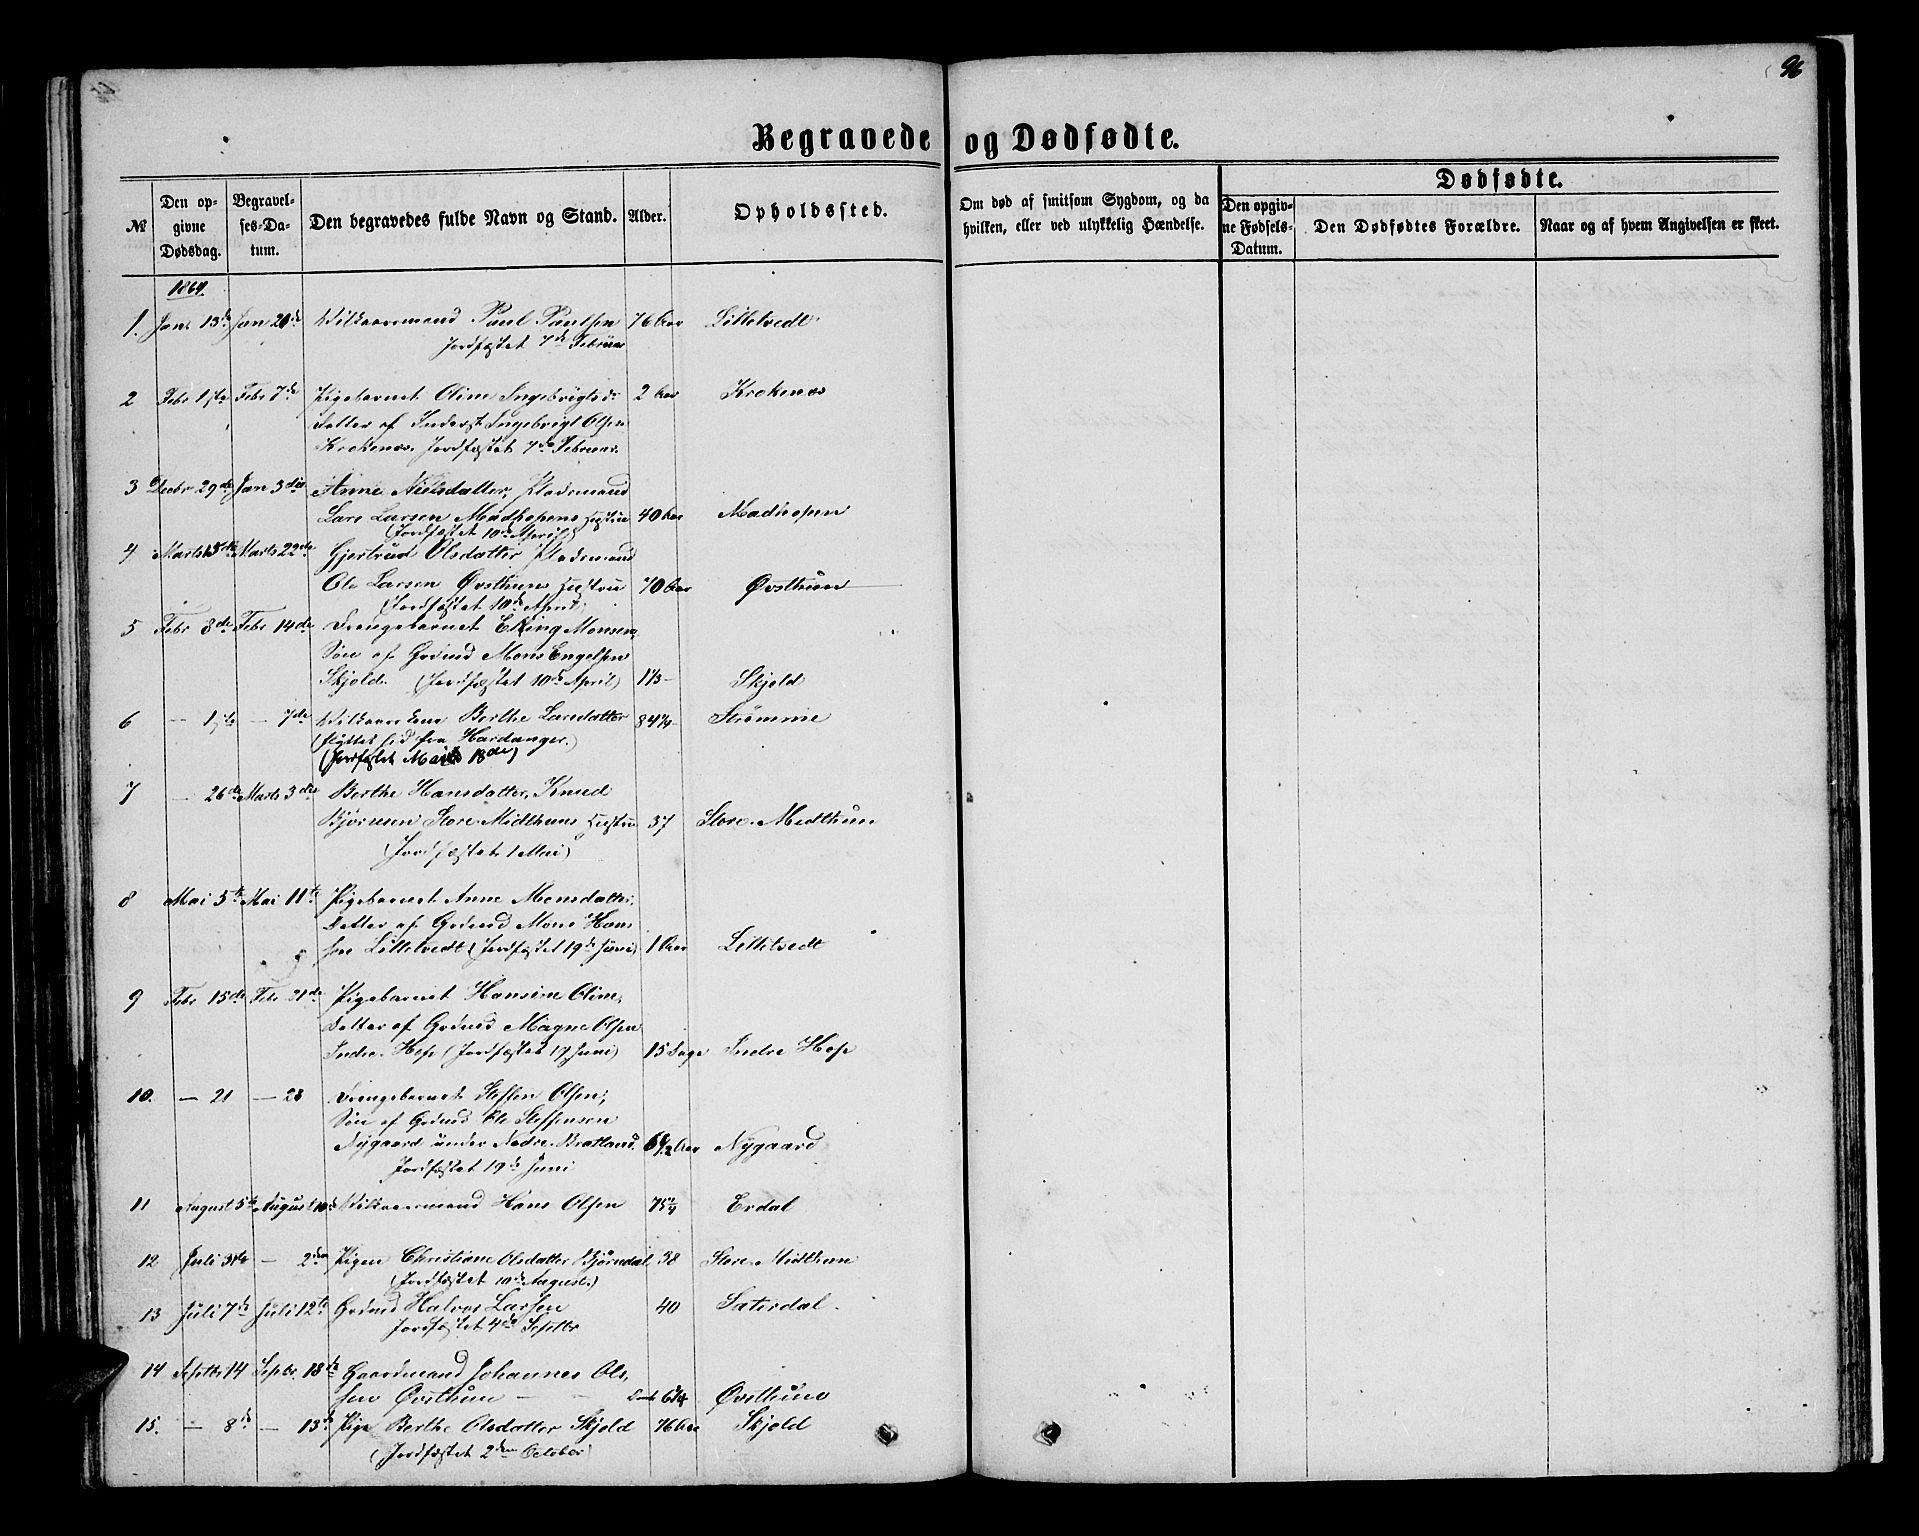 96
Begravede og Dødfødte.
№
Den opgivne Dødsdag.
Begravelses-Datum.
Den begravedes fulde Navn og Stand.
Alder.
Opholdssted.
Om død af smitsom Sygdom, og da hvilken, eller ved ulykkelig Hændelse.
Dødfødte.
Den opgivne Fødsels-Datum.
Den Dødfødtes Forældre.
Naar og af hvem Angivelsen er skeet.
1864.
1. Jan. 13de Jan 20de Vilkaarsmand Paul Paulsen 76 Aar Littletvedt
Jordfæstet 7de Februar
2 Febr 1ste Febr 7de Pigebarnet Oline Ingebrigtsdr 2 Aar Krokenæs
Datter af Inderst Ingebrigt Olsen
Krokenæs. Jordfæstet 7de Februar.
3 Decbr 29de Jan 3die Anne Nielsdatter, Pladsmand
Lars Larsen Madhopens Hustru 40 Aar Madhopen
(Jordfæstet 10de April)
4 Marts 15de Marts 22de Gjertrud Olsdatter Pladsmand
Ole Larsen Øvsthuns Hustru 70 Aar Øvsthun
(Jordfæstet 10de April)
5 Febr 8de Febr 14de Drengebarnet Elling Monsen,
Søn af Grdmd Mons Engelsen
Skjold. (Jordfæstet 10de April) 1 1/3 — Skjold
6 — 1ste — 7de Vilkaarskone Berthe Larsdatter 84 Strømme
(flyttet hid fra Hardanger.)
(Jordfæstet Mai 18de)
7 — 26de Marts 3die Berthe Hansdatter, Knud
Bjørnsen Store-Midthuns Hustru 37 Store-Midthun
(Jordfæstet 1 Mai)
8 Mai 5te Mai 11te Pigebarnet Anne Monsdatter,
Datter af Grdmd Mons Han
sen Littletvedt (Jordfæstet 19de Juni) 1 Aar Littletvedt
9 Febr 15de Febr 21de Pigebarnet Hansine Oline,
Datter af Grdmd Magne Olsen
Indre-Hop (Jordfæstet 19 Juni) 15 Dage Indre Hop
10. — 21 — 28 Drengebarnet Steffen Olsen,
Søn af Grdmd Ole Steffensen
Nygaard under Nedre-Bratland. 6 1/2 Aar Nygaard
Jordfæstet 19de Juni
11 August 5te August 10de Vilkaarsmand Hans Olsen 75 Erdal
12 Juli — 2den Pigen Christiane Olsdatter Bjørndal 38 Store-Midthun
(Jordfæstet 10de August.)
13 Juli 7de Juli 12te Grdmd Halvor Larsen 40 Saterdal.
Jordfæstet 4de Septbr
14 Septbr 14 Septbr. 18de Gaardmand Johannes Ols,
sen Øvsthun — Øvsthun
15. — 8de — 13de Pige Berthe Olsdatter Skjold 76 Aar Skjold
(Jordfæstet 2den October)